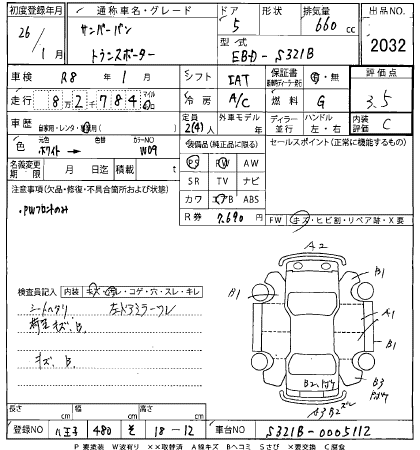 初度登録年月 通称車名・グレード ドア 形状 排気量 出品NO.
26/1月 サンバーバン トランスポーター 5 660cc 2032
型式 EBD-S321B
車検 R8年1月 シフト IAT 保証書 有・無 評価点
走行 8万2千784 マイル km 冷房 A/C 燃料 G 3.5
車歴 自家用・レンタ・ 定員 2(4)人 外車モデル 年 ディーラー・並行 ハンドル 左・右 内装評価 C
色 ホワイト→ 色替 カラーNO W09 装備品(純正品に限る) セールスポイント(正常に機能するもの)
名義変更期限 月 日迄 積載 t PS PW AW
注意事項(欠品・修復・不具合箇所および状態) SR TV ナビ
・PWフロントのみ カワ エアB ABS
R券 7,690円 FW キズ・ヒビ割・リペア跡・X要
検査員記入 内装 キズ・汚レ・コゲ・穴・スレ・キレ
シートヘタリ 左ドアミラーフレ
荷室キズ、B
キズ、B
A2
B1
B1
A1
B1
B3
A3
長さ cm 幅 cm 高さ cm
登録NO 八王子 480 そ 18-12 車台NO S321B-0005112
P 要塗装 W波有り ××取替済 A線キズ Bヘコミ Sさび ×要交換 C腐食